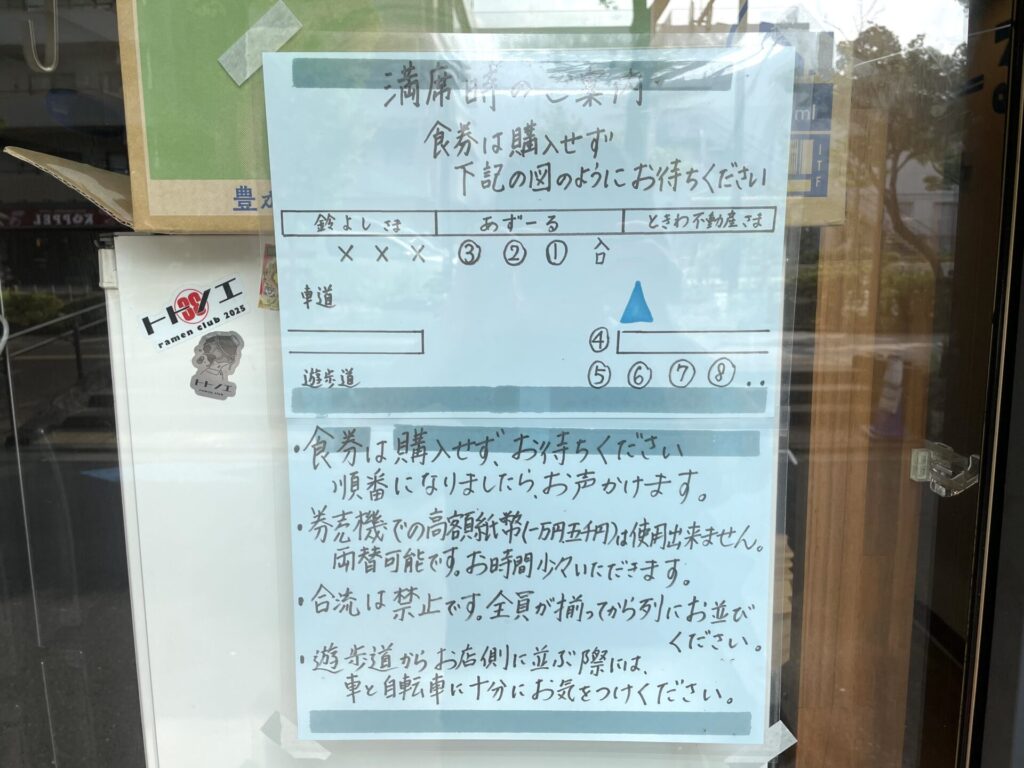 満席時のご案内
食券は購入せず
下記の図のようにお待ちください
鈴よしさま あずーる ときわ不動産さま
× × × ③ ② ① 入口
車道
④
遊歩道 ⑤ ⑥ ⑦ ⑧ ‥
・食券は購入せず、お待ちください
順番になりましたら、お声かけます。
・券売機での高額紙幣(一万円五千円)は使用出来ません。
両替可能です。お時間少々いただきます。
・合流は禁止です。全員が揃ってから列にお並び
ください。
・遊歩道からお店側に並ぶ際には、
車と自転車に十分にお気をつけください。
トトノエ
ramen club 2025
トトノエ
豊か
KOPPEL
ml
ITF